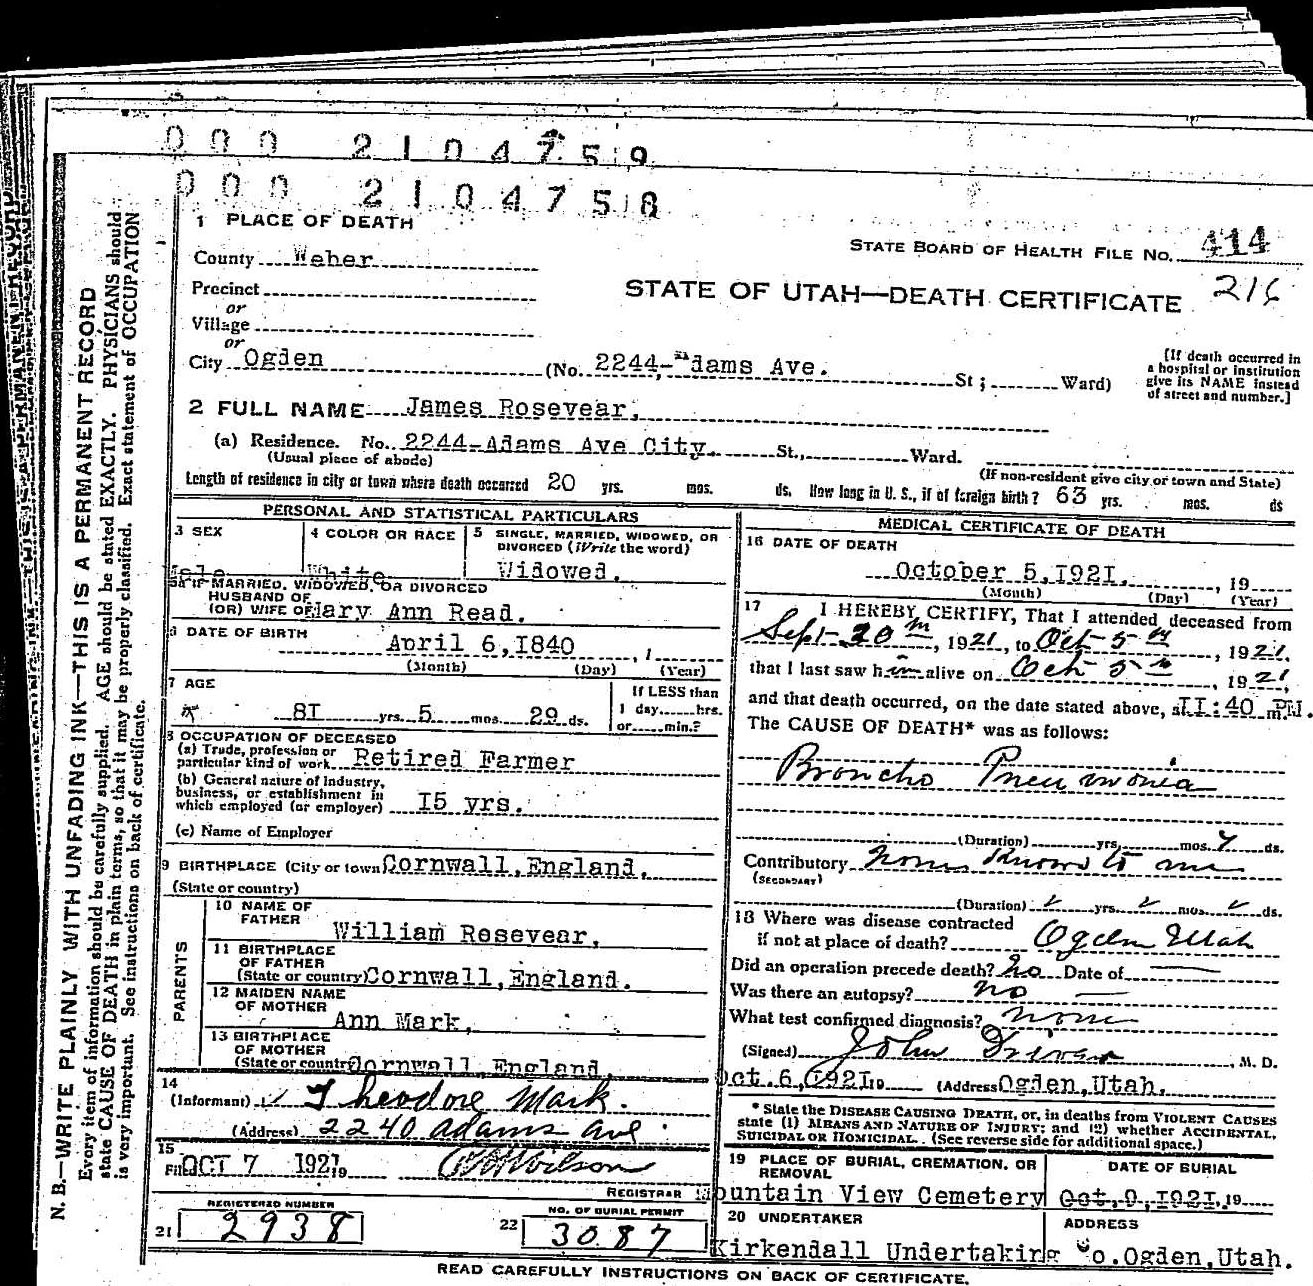 0 0 0 2 1 0 4 7 5 9
0 0 0 2 1 0 4 7 5 8
1 PLACE OF DEATH
STATE BOARD OF HEALTH FILE No. 414
County Weber
216
Precinct
STATE OF UTAH—DEATH CERTIFICATE
or
Village
or
City Ogden (No. 2244-Adams Ave. St; Ward)
[If death occurred in
a hospital or institution
give its NAME instead
of street and number.]
2 FULL NAME James Rosevear,
(a) Residence. No. 2244-Adams Ave City. St., Ward.
(Usual place of abode) (If non-resident give city or town and State)
Length of residence in city or town where death occurred 20 yrs. mos. ds. How long in U. S., if of foreign birth? 63 yrs. mos. ds
PERSONAL AND STATISTICAL PARTICULARS
3 SEX
Male
4 COLOR OR RACE
White
5 SINGLE, MARRIED, WIDOWED, OR
DIVORCED (Write the word)
Widowed.
5a IF MARRIED, WIDOWED, OR DIVORCED
HUSBAND OF
(OR) WIFE OF Mary Ann Read.
6 DATE OF BIRTH
April 6,I840 , 1
(Month) (Day) (Year)
7 AGE
8I yrs. 5 mos. 29 ds.
If LESS than
1 day, hrs.
or min.?
8 OCCUPATION OF DECEASED
(a) Trade, profession or
particular kind of work Retired Farmer
(b) General nature of industry,
business, or establishment in
which employed (or employer) I5 yrs.
(c) Name of Employer
9 BIRTHPLACE (City or town Cornwall,England.
(State or country)
PARENTS
10 NAME OF
FATHER
William Rosevear.
11 BIRTHPLACE
OF FATHER
(State or country) Cornwall,England.
12 MAIDEN NAME
OF MOTHER
Ann Mark,
13 BIRTHPLACE
OF MOTHER
(State or country Cornwall,England.
14
(Informant) Theodore Mark.
(Address) 2240 Adams Ave.
15
Filed OCT 7 1921 19
Wilson
REGISTRAR
REGISTERED NUMBER
21 2938
NO. OF BURIAL PERMIT
22 3087
MEDICAL CERTIFICATE OF DEATH
16 DATE OF DEATH
October 5,I92I. , 19
(Month) (Day) (Year)
17 I HEREBY CERTIFY, That I attended deceased from
Sept 30th, 1921, to Oct 5th, 1921,
that I last saw him alive on Oct 5th, 1921,
and that death occurred, on the date stated above, at II:40 m.PM.
The CAUSE OF DEATH* was as follows:
Broncho Pneumonia
(Duration) yrs. mos. 7 ds.
Contributory None Known to me
(SECONDARY)
(Duration) yrs. mos. ds.
18 Where was disease contracted
if not at place of death? Ogden Utah
Did an operation precede death? No Date of
Was there an autopsy? no
What test confirmed diagnosis? none
(Signed) John Driver, M. D.
Oct.6, I92I 19 (Address Ogden,Utah.
* State the DISEASE CAUSING DEATH, or, in deaths from VIOLENT CAUSES
state (1) MEANS AND NATURE OF INJURY; and (2) whether ACCIDENTAL,
SUICIDAL OR HOMICIDAL. (See reverse side for additional space.)
19 PLACE OF BURIAL, CREMATION, OR
REMOVAL
Mountain View Cemetery
DATE OF BURIAL
Oct,9,I92I. 19
20 UNDERTAKER
Kirkendall Undertaking Co.
ADDRESS
Ogden,Utah.
READ CAREFULLY INSTRUCTIONS ON BACK OF CERTIFICATE.
N. B.—WRITE PLAINLY WITH UNFADING INK—THIS IS A PERMANENT RECORD
Every item of information should be carefully supplied. AGE should be stated EXACTLY. PHYSICIANS should
state CAUSE OF DEATH in plain terms, so that it may be properly classified. Exact statement of OCCUPATION
is very important. See instructions on back of certificate.